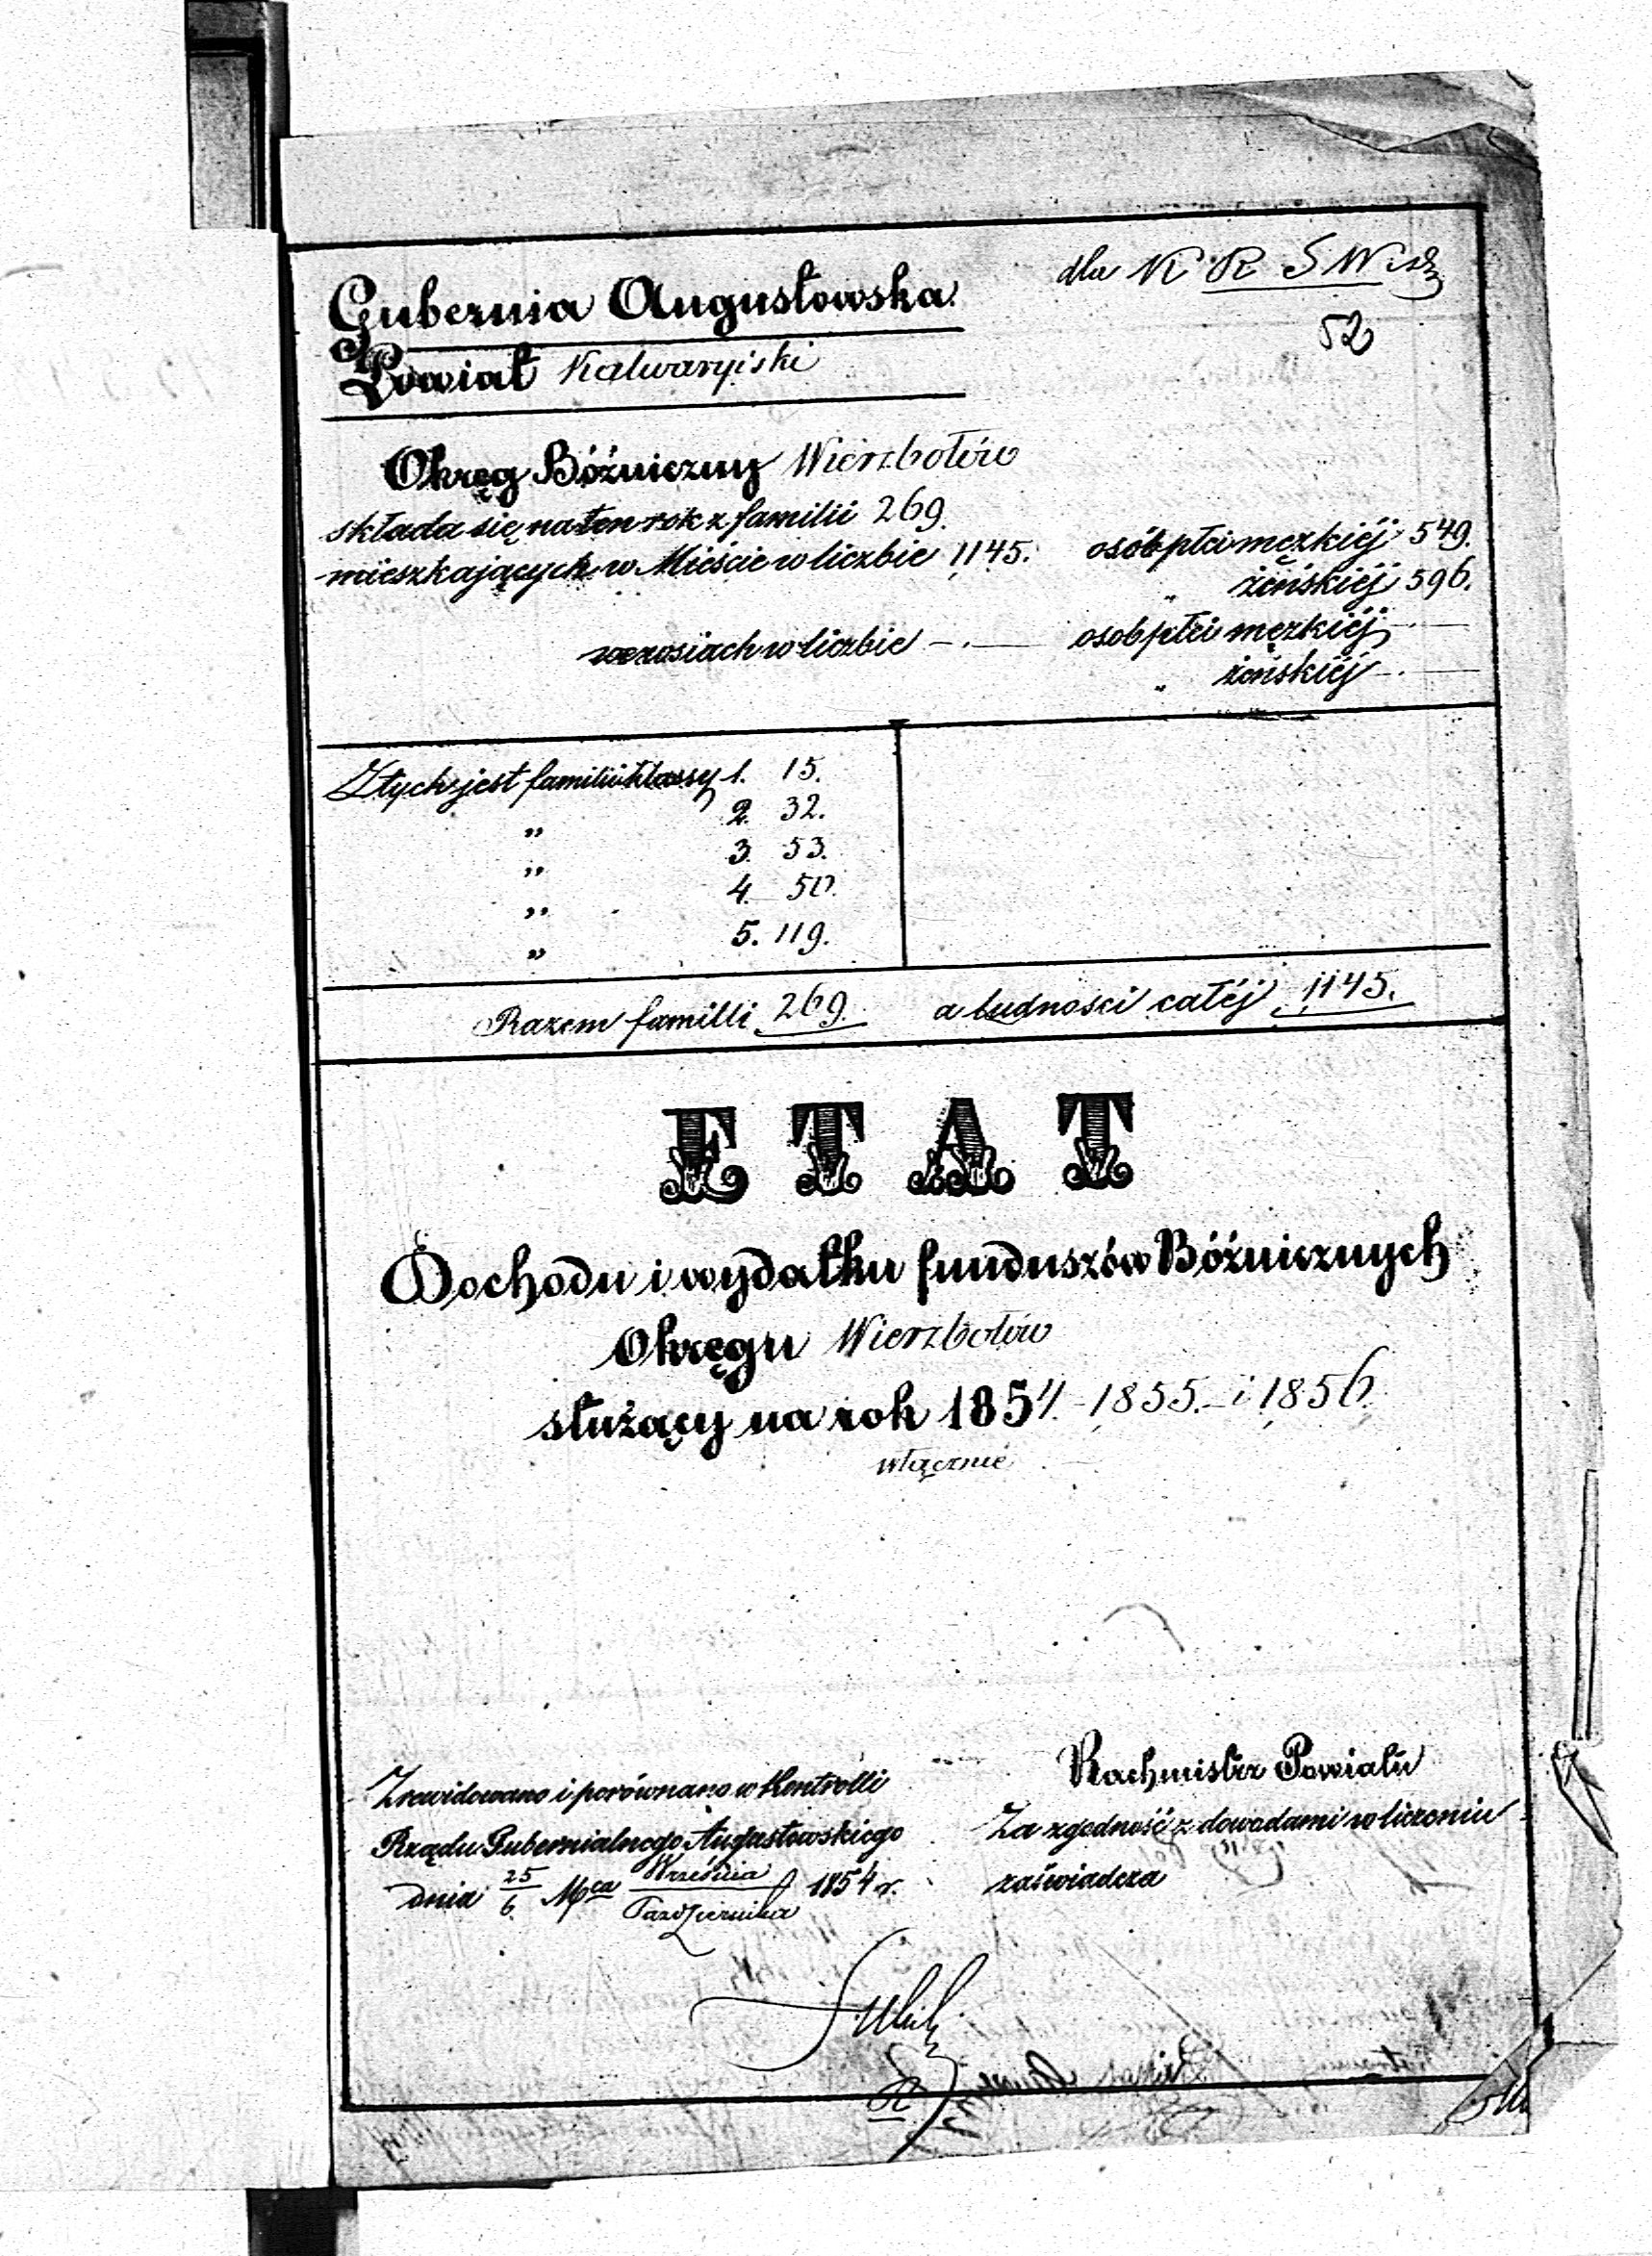 dla K R S W i D
52
Gubernia Augustowska
Powiat Kalwaryiski
Okręg Bóźniczny Wierzbołów
składa się na ten rok z familii 269.
mieszkających w Mieście w liczbie 1145. osób płci męzkiéj 549.
" żeńskiéj 596.
we wsiach w liczbie — . — osob płci męzkiéj — . —
" żeńskiéj — . —
Z tych jest familii klassy 1. 15.
" 2. 32.
" 3. 53.
" 4. 50.
" 5. 119.
Razem familli 269. a ludności całéj 1145.
ETAT
Dochodu i wydatku funduszów Bóźnicznych
Okręgu Wierzbołów
służący na rok 1854. - 1855. - i 1856.
włącznie
Zrewidowano i porównano w Kontrolli
Rządu Gubernialnego Augustowskiego
dnia 25/6 Mca Września/Października 1854 r.
Rachmistrz Powiatu
Za zgodność z dowodami w liczeniu
zaświadcza